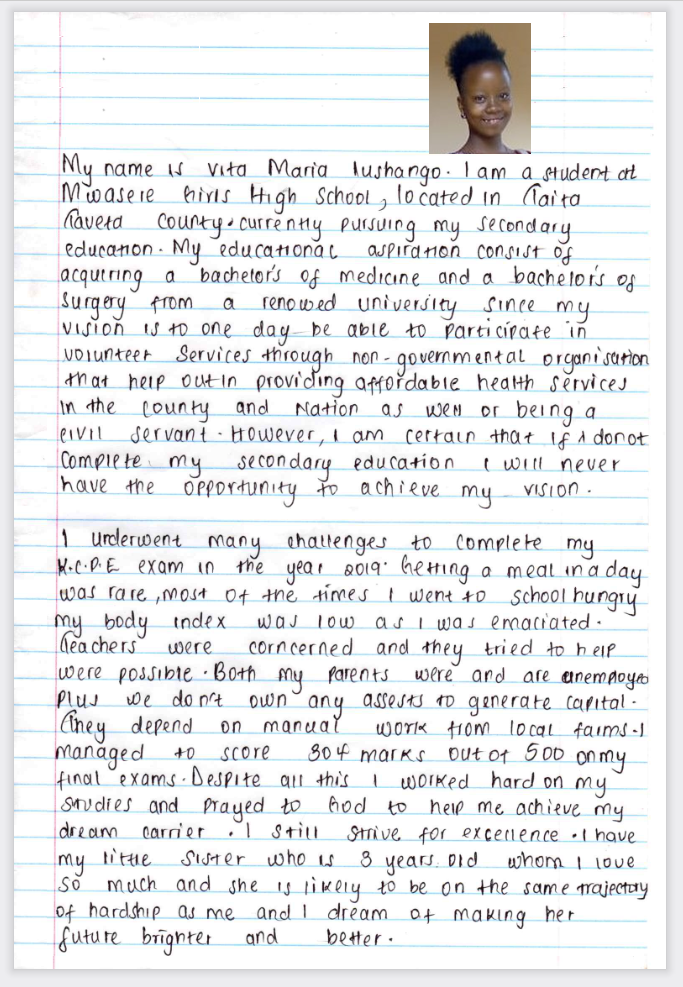 My name is vita Maria lushango. I am a student at
Mwasere Girls High School, located in Taita
Taveta county. currently pursuing my secondary
education. My educational aspiration consist of
acquiring a bachelor's of medicine and a bachelor's of
Surgery from a renowed university since my
vision is to one day be able to participate in
volunteer services through non-governmental organisation
that help out in providing affordable health services
in the county and Nation as well or being a
civil servant. However, I am certain that if I donot
Complete my secondary education I will never
have the opportunity to achieve my vision.
I underwent many challenges to complete my
K.C.P.E exam in the year 2019. Getting a meal in a day
was rare, most of the times I went to school hungry
my body index was low as I was emaciated.
Teachers were corncerned and they tried to help
were possible. Both my parents were and are unemployed
Plus we don't own any assests to generate capital.
They depend on manual work from local farms. I
managed to score 304 marks out of 500 on my
final exams. Despite all this I worked hard on my
studies and prayed to God to help me achieve my
dream carrier. I still strive for excellence. I have
my little sister who is 3 years old whom I love
so much and she is likely to be on the same trajectory
of hardship as me and I dream of making her
future brighter and better.